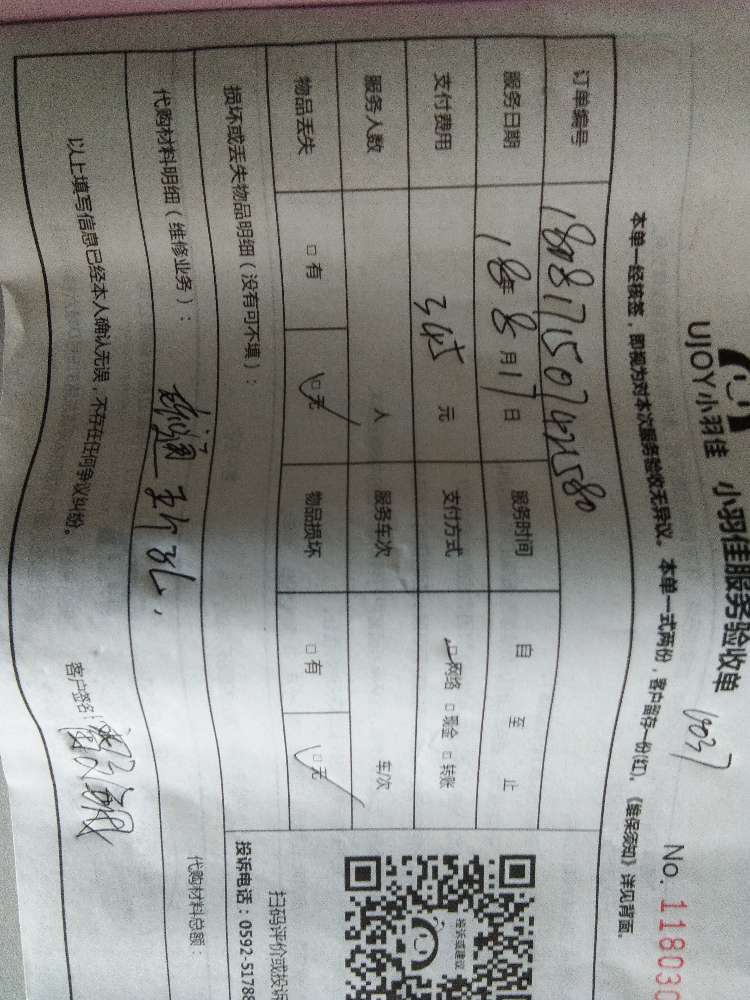 UJOY小羽佳 小羽佳服务验收单
0037
No. 118030
本单一经核签，即视为对本次服务验收无异议。本单一式两份，客户留存一份(红)，《维保须知》详见背面。
订单编号 180817150742580
服务日期 18年8月17日 服务时间 自 至 止
支付费用 345元 支付方式 □网络 □现金 □转账
服务人数 人 服务车次 车/次
物品丢失 □有 □无 物品损坏 □有 □无
损坏或丢失物品明细（没有可不填）：
代购材料明细（维修业务）： 代购材料总额：
以上填写信息已经本人确认无误，不存在任何争议纠纷。 客户签名：
投诉或建议
扫码评价或投诉
投诉电话：0592-51788